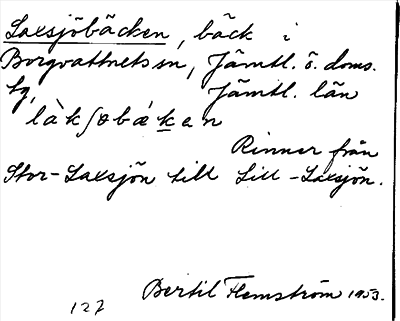 Laxsjöbäcken, bäck i
Borgvattnets sn, Jämtl. ö. doms.
tg, Jämtl. län
làkʃøbæken
Rinner från
Stor-Laxsjön till Lill-Laxsjön.
Bertil Flemström 1953.
127